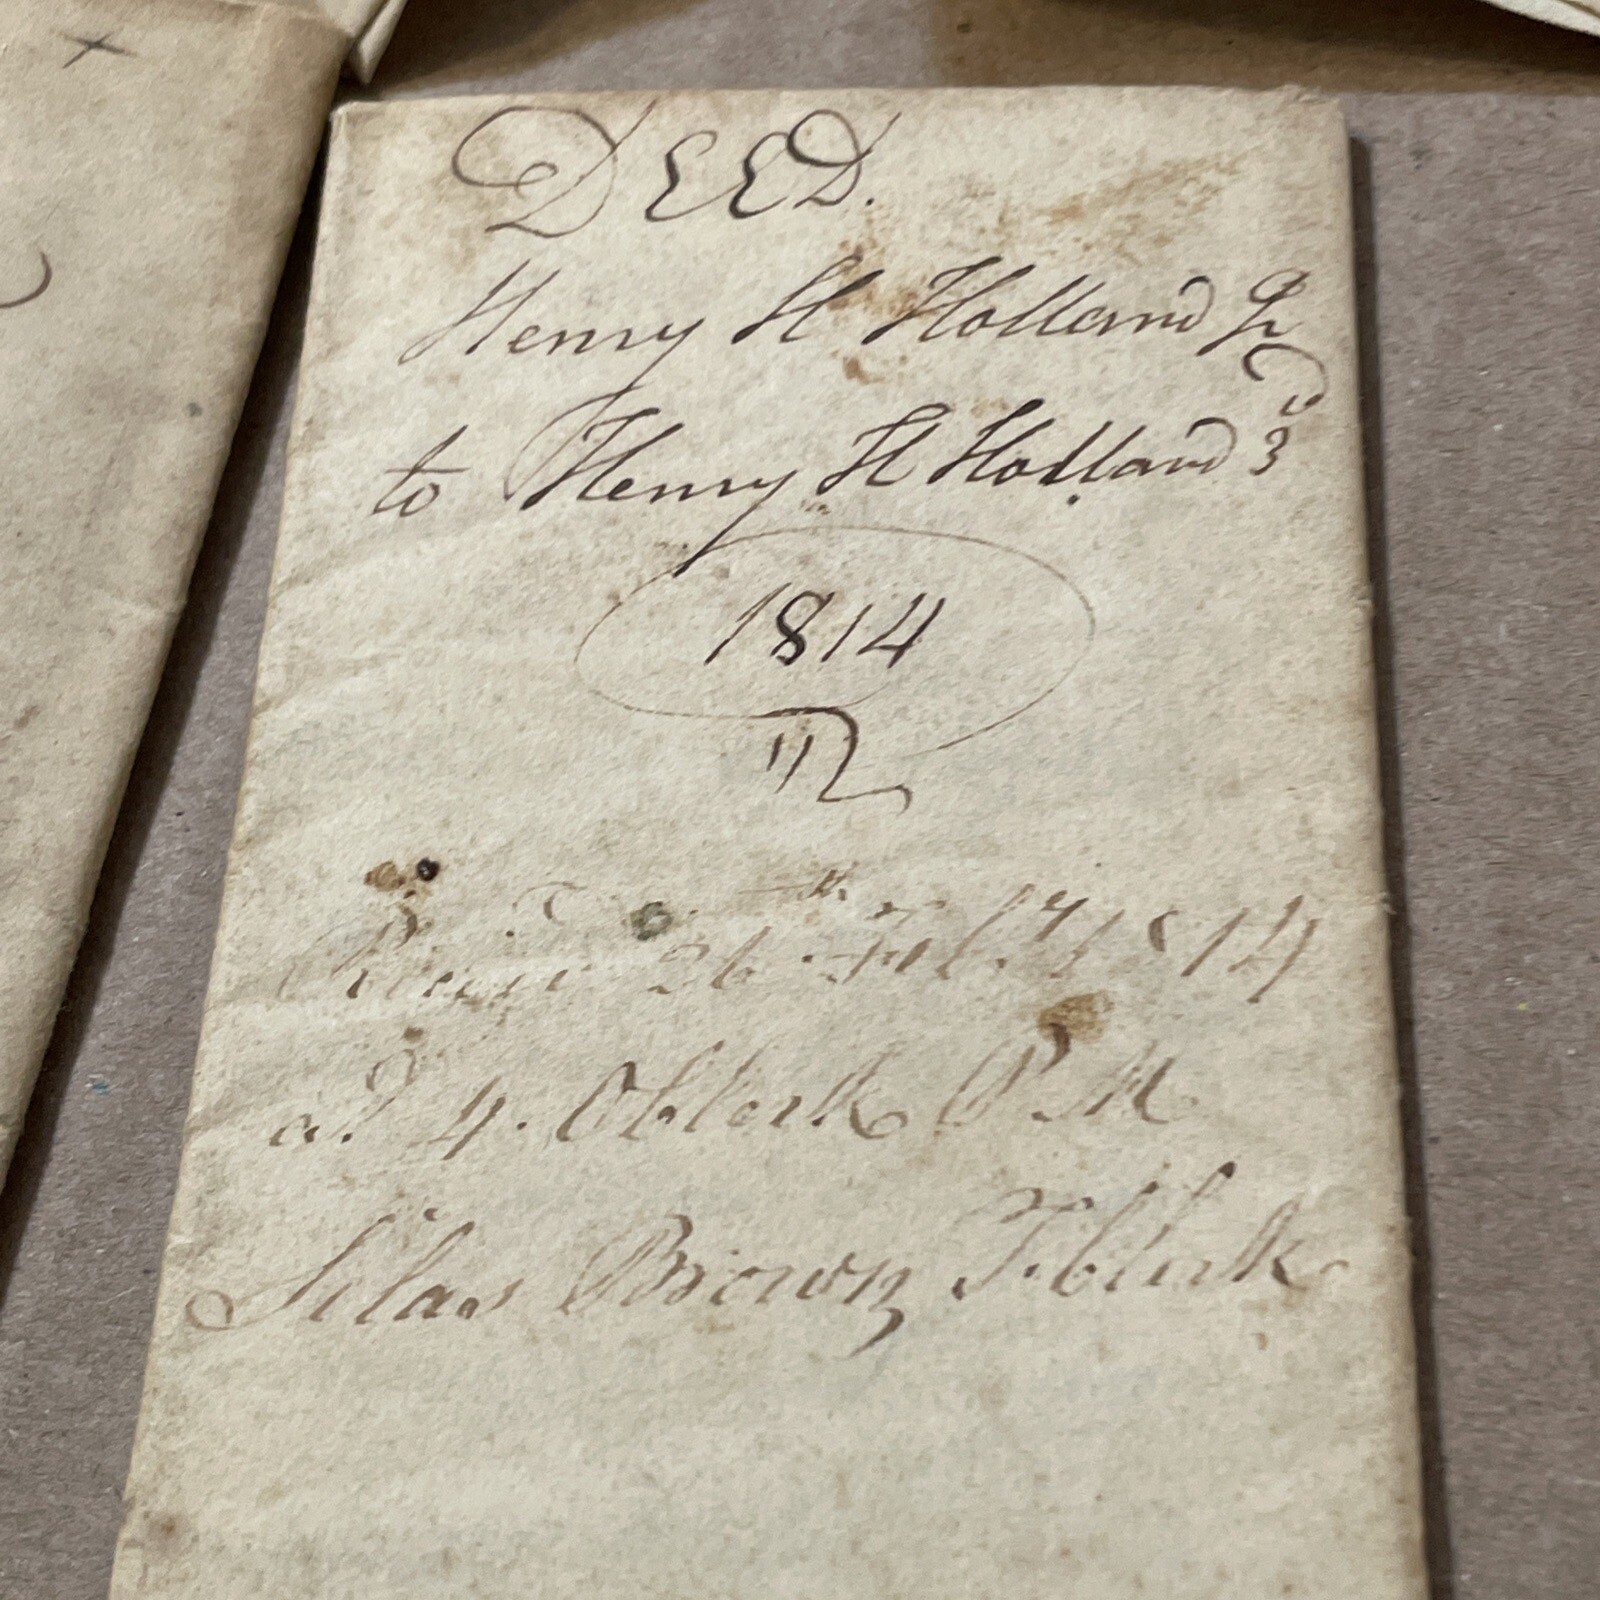 DEED.
Henry H Holland Jr
to Henry H Holland 3d
1814
26th 1814
at 4. OClock P M
Silas Brown T. Clerk